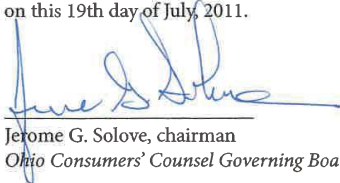 on this 19th day of July, 2011.
Jerome G. Solove, chairman
Ohio Consumers' Counsel Governing Boa